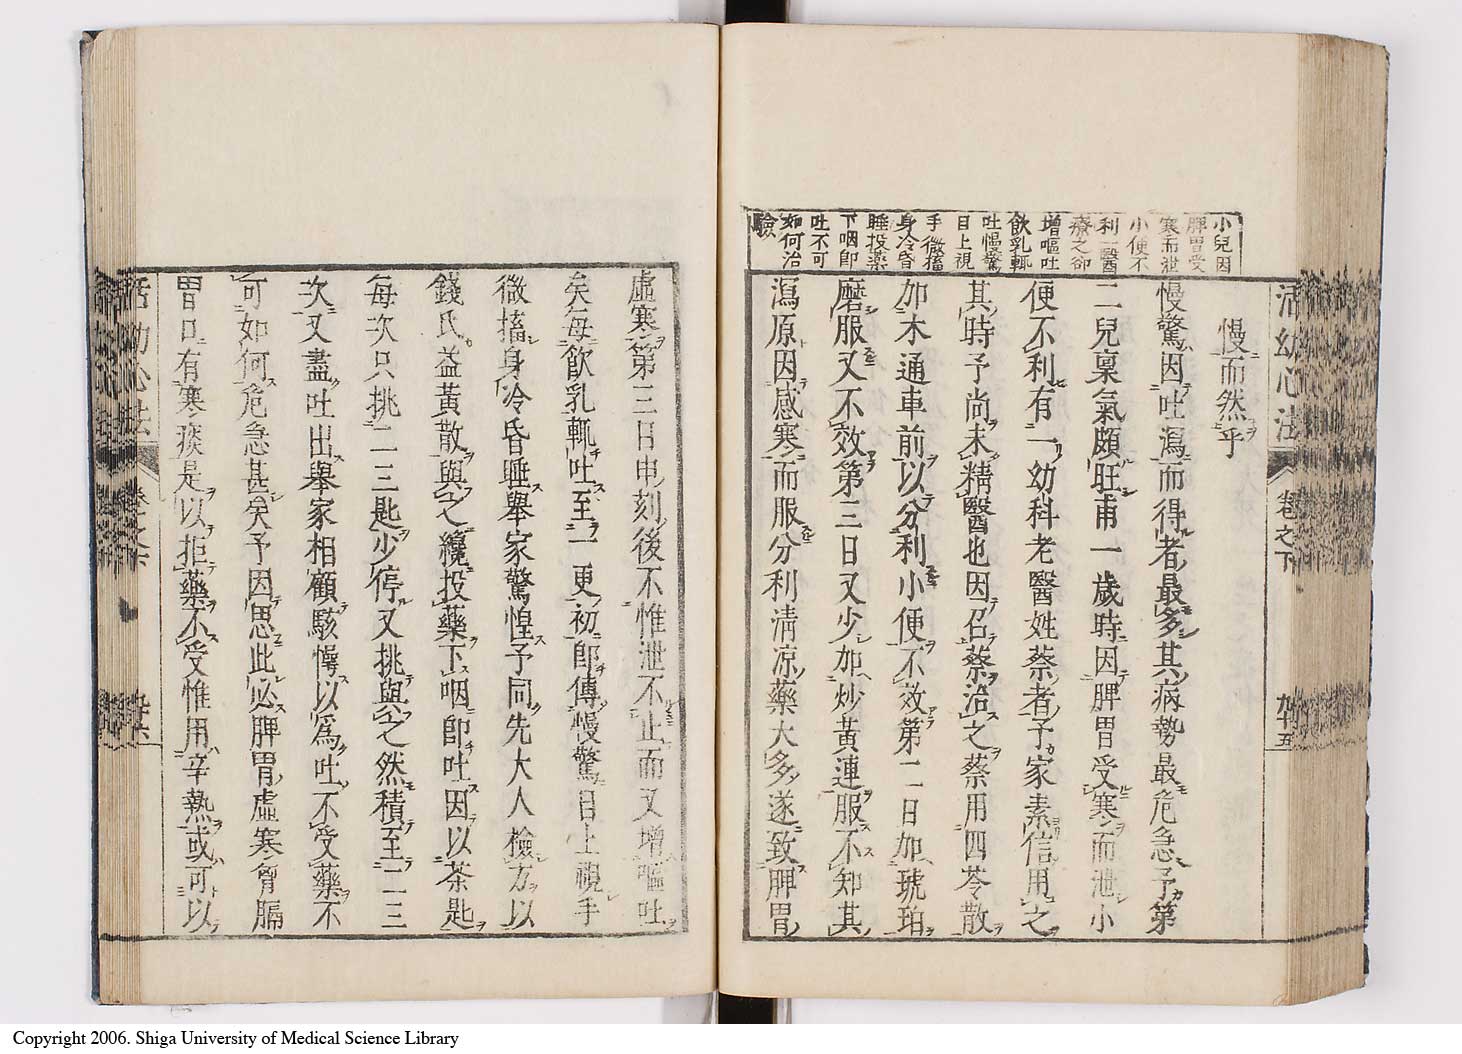 小兒因
脾胃受
寒而泄
小便不
利一醫
療之卻
增嘔吐
飲乳輒
吐慢驚
目上視
手微搐
身冷昏
睡投藥
下咽即
吐不可
如何治
驗
活幼心法
卷之下
九十五
慢而然乎
慢驚因吐瀉而得者最多其病勢最危急予第
二兒稟氣頗旺甫一歲時因脾胃受寒而泄小
便不利有一幼科老醫姓蔡者予家素信用之
其時予尚未精醫也因召蔡治之蔡用四苓散
加木通車前以分利小便不效第二日加琥珀
磨服又不效第三日又少加炒黃連服不知其
瀉原因感寒而服分利清凉藥太多遂致脾胃
虛寒第三日申刻後不惟泄不止而又增嘔吐
矣每飲乳輒吐至一更初即傳慢驚目上視手
微搐身冷昏睡舉家驚惶予同先大人檢方以
錢氏益黃散與之纔投藥下咽即吐因以茶匙
每次只挑二三匙少停又挑與之然積至二三
次又盡吐出舉家相顧駭愕以爲吐不受藥不
可如何危急甚矣予因思此必脾胃虛寒胷膈
胃口有寒痰是以拒藥不受惟用辛熱或可以
活幼心法